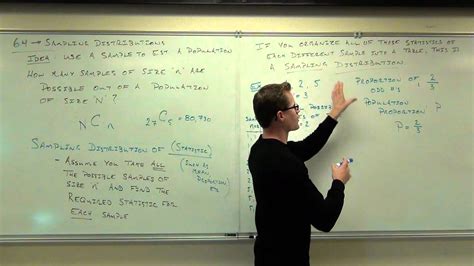 6.4 → SAMPLING DISTRIBUTIONS
IDEA: USE A SAMPLE TO EST A POPULATION
HOW MANY SAMPLES OF SIZE 'n' ARE
POSSIBLE OUT OF A POPULATION
OF SIZE N?
nCn 27C5 = 80,730
SAMPLING DISTRIBUTION OF (STATISTIC)
- ASSUME YOU TAKE ALL
THE POSSIBLE SAMPLES
OF SIZE n AND FIND THE
REQUIRED STATISTIC FOR
EACH SAMPLE
(SUCH AS MEAN
PROPORTION)
IF YOU ORGANIZE ALL OF THESE STATISTICS OF
EACH DIFFERENT SAMPLE INTO A TABLE, THIS IS
A SAMPLING DISTRIBUTION.
2, 5
= 3
PROPORTION OF
ODD #'s
2/3
POPULATION
PROPORTION P
P = 2/3